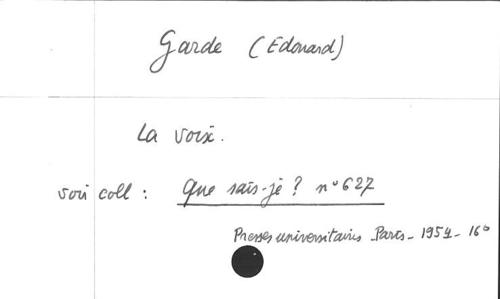 Garde (Edouard)
La voix.
voir coll : Que sais-je ? n° 627
Presses universitaires - Paris - 1954 - 16°